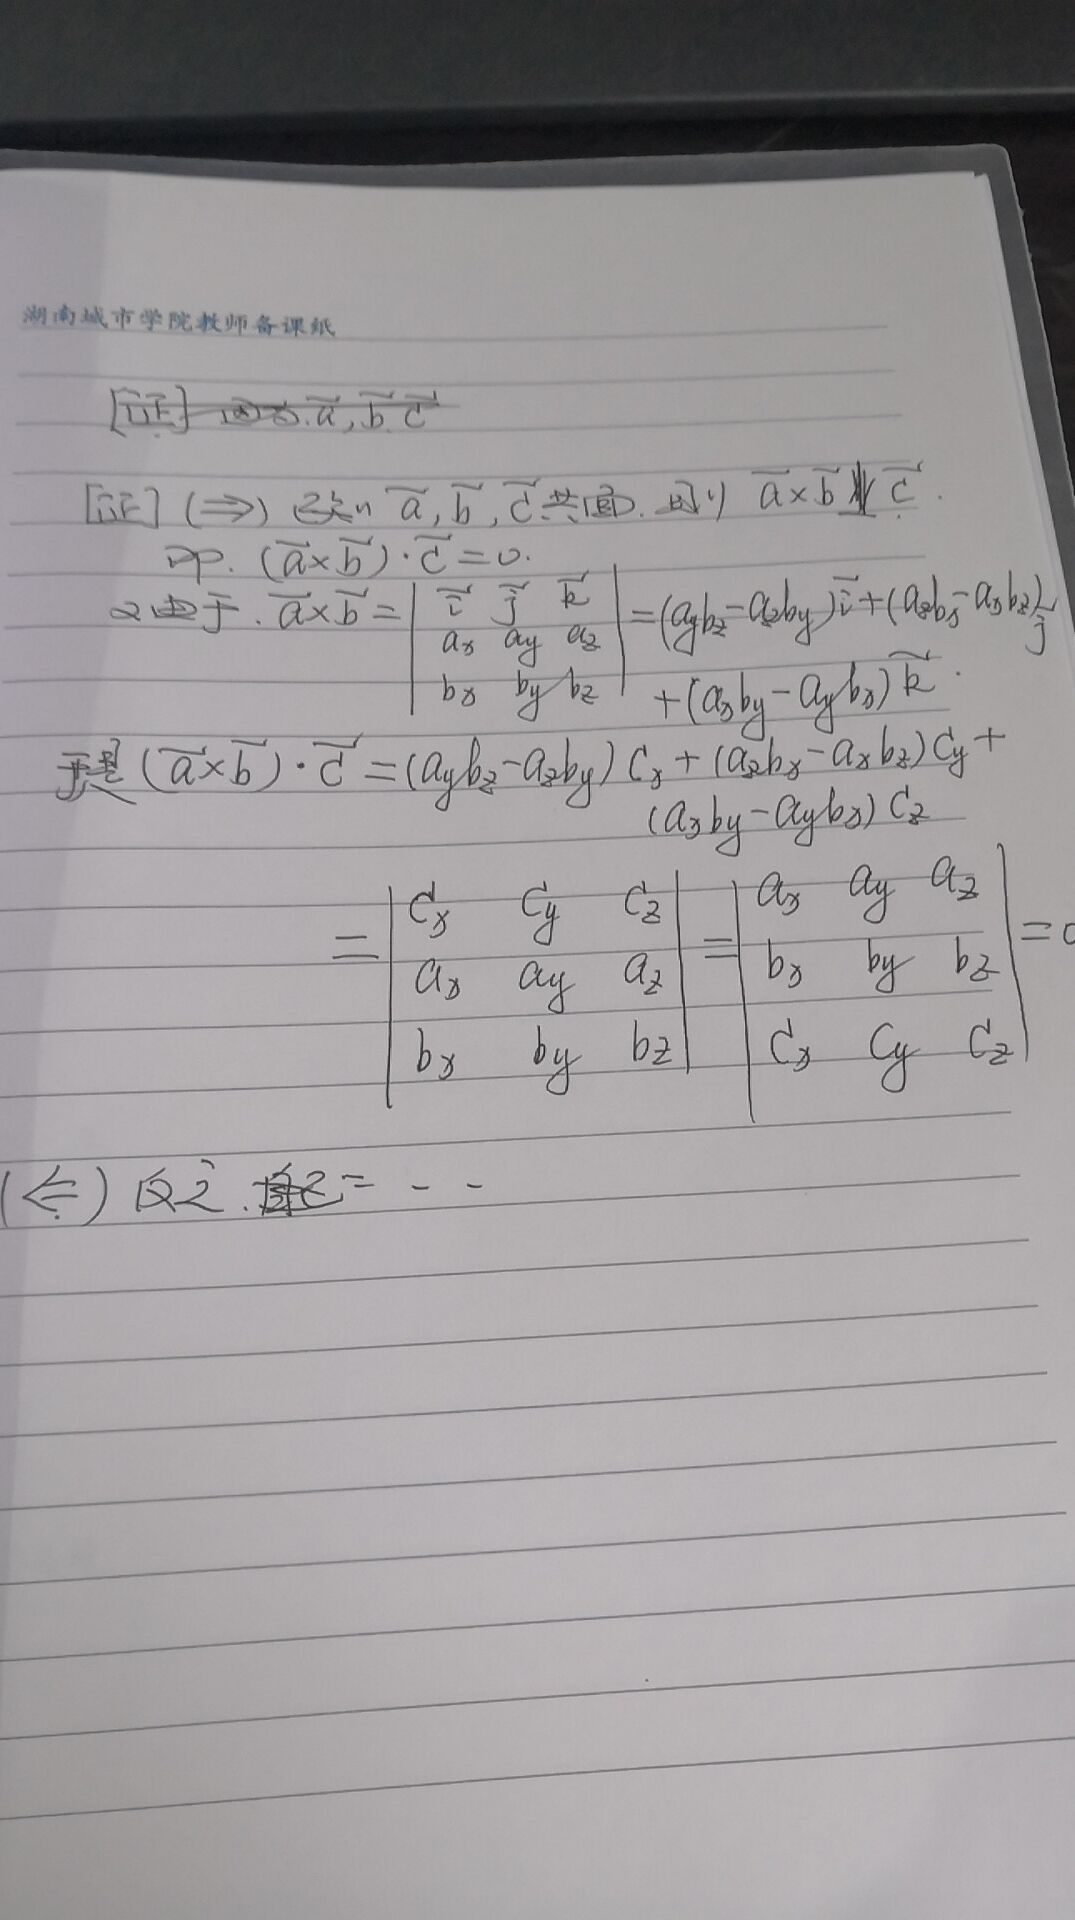 湖南城市学院教师备课纸
[证] 因为 a⃗, b⃗ c⃗
[证] (⇒) 已知 a⃗, b⃗, c⃗ 共面. 则 a⃗×b⃗ ⊥ c⃗.
即. (a⃗×b⃗)·c⃗=0.
又由于. a⃗×b⃗ = | i⃗ j⃗ k⃗ | = (a_y b_z - a_z b_y) i⃗ + (a_z b_x - a_x b_z) j⃗
| a_x a_y a_z |
| b_x b_y b_z | + (a_x b_y - a_y b_x) k⃗.
于是 (a⃗×b⃗)·c⃗ = (a_y b_z - a_z b_y) c_x + (a_z b_x - a_x b_z) c_y +
(a_x b_y - a_y b_x) c_z
= | c_x c_y c_z | = | a_x a_y a_z | = 0
| a_x a_y a_z | | b_x b_y b_z |
| b_x b_y b_z | | c_x c_y c_z |
(⇐)